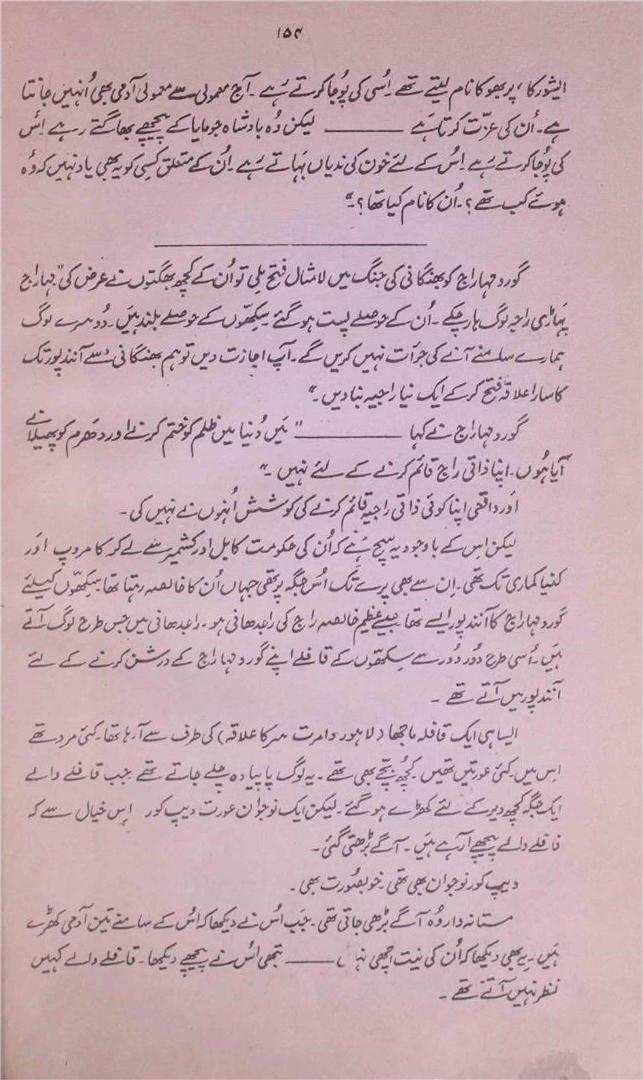 ۱۵۴
ایشور کا، پربھو کا نام لیتے تھے۔ اُسی کی پُوجا کرتے رہے۔ آج معمولی سے معمولی آدمی بھی اُنہیں جانتا
ہے۔ اُن کی عزّت کرتا ہے ——— لیکن وُہ بادشاہ جو مایا کے پیچھے بھاگتے رہے اِس
کی پُوجا کرتے رہے۔ اِس کے لئے خون کی ندیاں بہاتے رہے۔ اُن کے متعلق کسی کو یہ بھی یاد نہیں کہ وُہ
ہوئے کب تھے؟۔ اُن کا نام کیا تھا؟۔"
گورو مہاراج کو بھنگانی کی جنگ میں لامثال فتح ملی تو اُن کے کچھ بھگتوں نے عرض کی" مہاراج
پہاڑی راجیہ لوگ ہار چکے۔ اُن کے حوصلے پست ہو گئے۔ سِکھّوں کے حوصلے بلند ہیں۔ دُوسرے لوگ
ہمارے سامنے آنے کی جرأت نہیں کریں گے۔ آپ اجازت دیں تو ہم بھنگانی سے آنند پور تک
کا سارا علاقہ فتح کر کے ایک نیا راجیہ بنا دیں۔"
گورو مہاراج نے کہا ——— "میں دُنیا میں ظلم کو ختم کرنے اور دھرم کو پھیلانے
آیا ہُوں۔ اپنا ذاتی راج قائم کرنے کے لئے نہیں۔"
اور واقعی اپنا کوئی ذاتی راجیہ قائم کرنے کی کوشش اُنہوں نے نہیں کی۔
لیکن اس کے باوجود یہ سچ ہے کہ اُن کی حکومت کابل اور کشمیر سے لے کر کامروپ اور
کنیا کماری تک تھی۔ اِن سے بھی پرے تک اُس جگہ پر تھی جہاں اُن کا خالصہ رہتا تھا۔ سِکھّوں کیلئے
گورو مہاراج کا آنند پور ایسے تھا جیسے عظیم خالصہ راج کی راجدھانی ہو۔ راجدھانی میں جس طرح لوگ آتے
ہیں۔ اُسی طرح دُور دُور سے سِکھّوں کے قافلے اپنے گورو مہاراج کے درشن کرنے کے لئے
آنند پور میں آتے تھے۔
ایسا ہی ایک قافلہ ماجھا (لاہور و امرت سر کا علاقہ) کی طرف سے آ رہا تھا۔ کئی مرد تھے
اِس میں کئی عورتیں تھیں۔ کچھ بچّے بھی تھے۔ یہ لوگ پاپیادہ چلے جاتے تھے۔ جب قافلے والے
ایک جگہ کچھ دیر کے لئے کھڑے ہو گئے۔ لیکن ایک نوجوان عورت دیپ کور اِس خیال سے کہ
قافلے والے پیچھے آ رہے ہیں۔ آگے بڑھتی گئی۔
دیپ کور نوجوان بھی تھی۔ خوبصورت بھی۔
مستانہ وار وُہ آگے بڑھی جاتی تھی۔ جب اس نے دیکھا کہ اُس کے سامنے تین آدمی کھڑے
ہیں۔ یہ بھی دیکھا کہ اُن کی نیت اچھی ——— تبھی اُس نے پیچھے دیکھا۔ قافلے والے کہیں
نظر نہیں آتے تھے۔